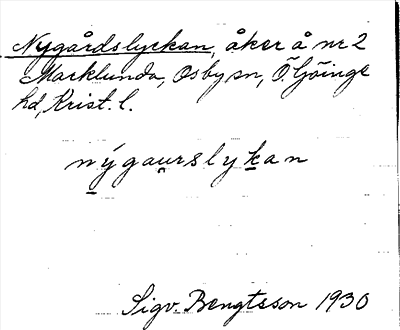 Nygårdslyckan, åker å nr 2
Marklunda, Osby sn, Ö. Göinge
hd, Krist. l.
nýgau̯rslyḵan
Sigv. Bengtsson 1930